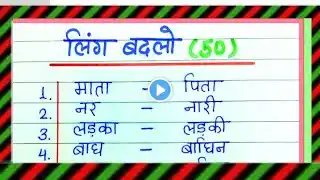 लिंग बदलो (50)
1. माता - पिता
2. नर - नारी
3. लड़का - लड़की
4. बाघ - बाघिन